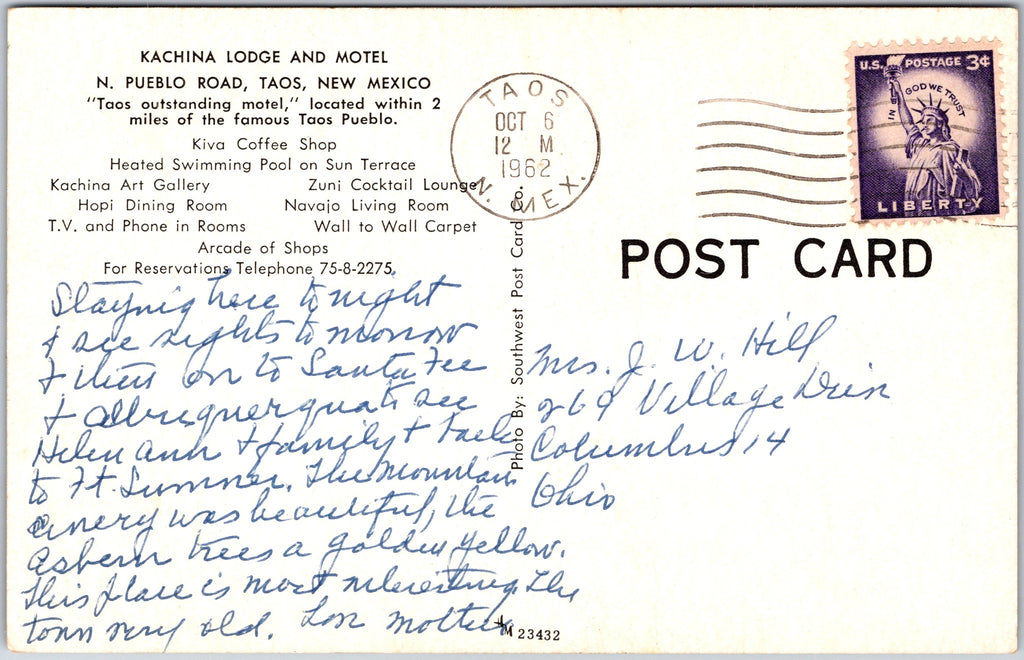 KACHINA LODGE AND MOTEL
N. PUEBLO ROAD, TAOS, NEW MEXICO
"Taos outstanding motel," located within 2
miles of the famous Taos Pueblo.
Kiva Coffee Shop
Heated Swimming Pool on Sun Terrace
Kachina Art Gallery Zuni Cocktail Lounge
Hopi Dining Room Navajo Living Room
T.V. and Phone in Rooms Wall to Wall Carpet
Arcade of Shops
For Reservations Telephone 75-8-2275
Staying here tonight
& see sights tomorrow
& then on to Santa Fee
& Albuquerque to see
Helen Ann & family &
to Ft. Sumner. The Mountain
was beautiful, the
Asbern trees a golden yellow.
This place is most interesting. The
town very old. Love Mother
M 23432
Photo By: Southwest Post Card
TAOS
OCT 6
12 M
1962
N. MEX.
U.S. POSTAGE 3¢
IN GOD WE TRUST
LIBERTY
POST CARD
Mrs. J. W. Hill
269 Village Drive
Columbus 14
Ohio